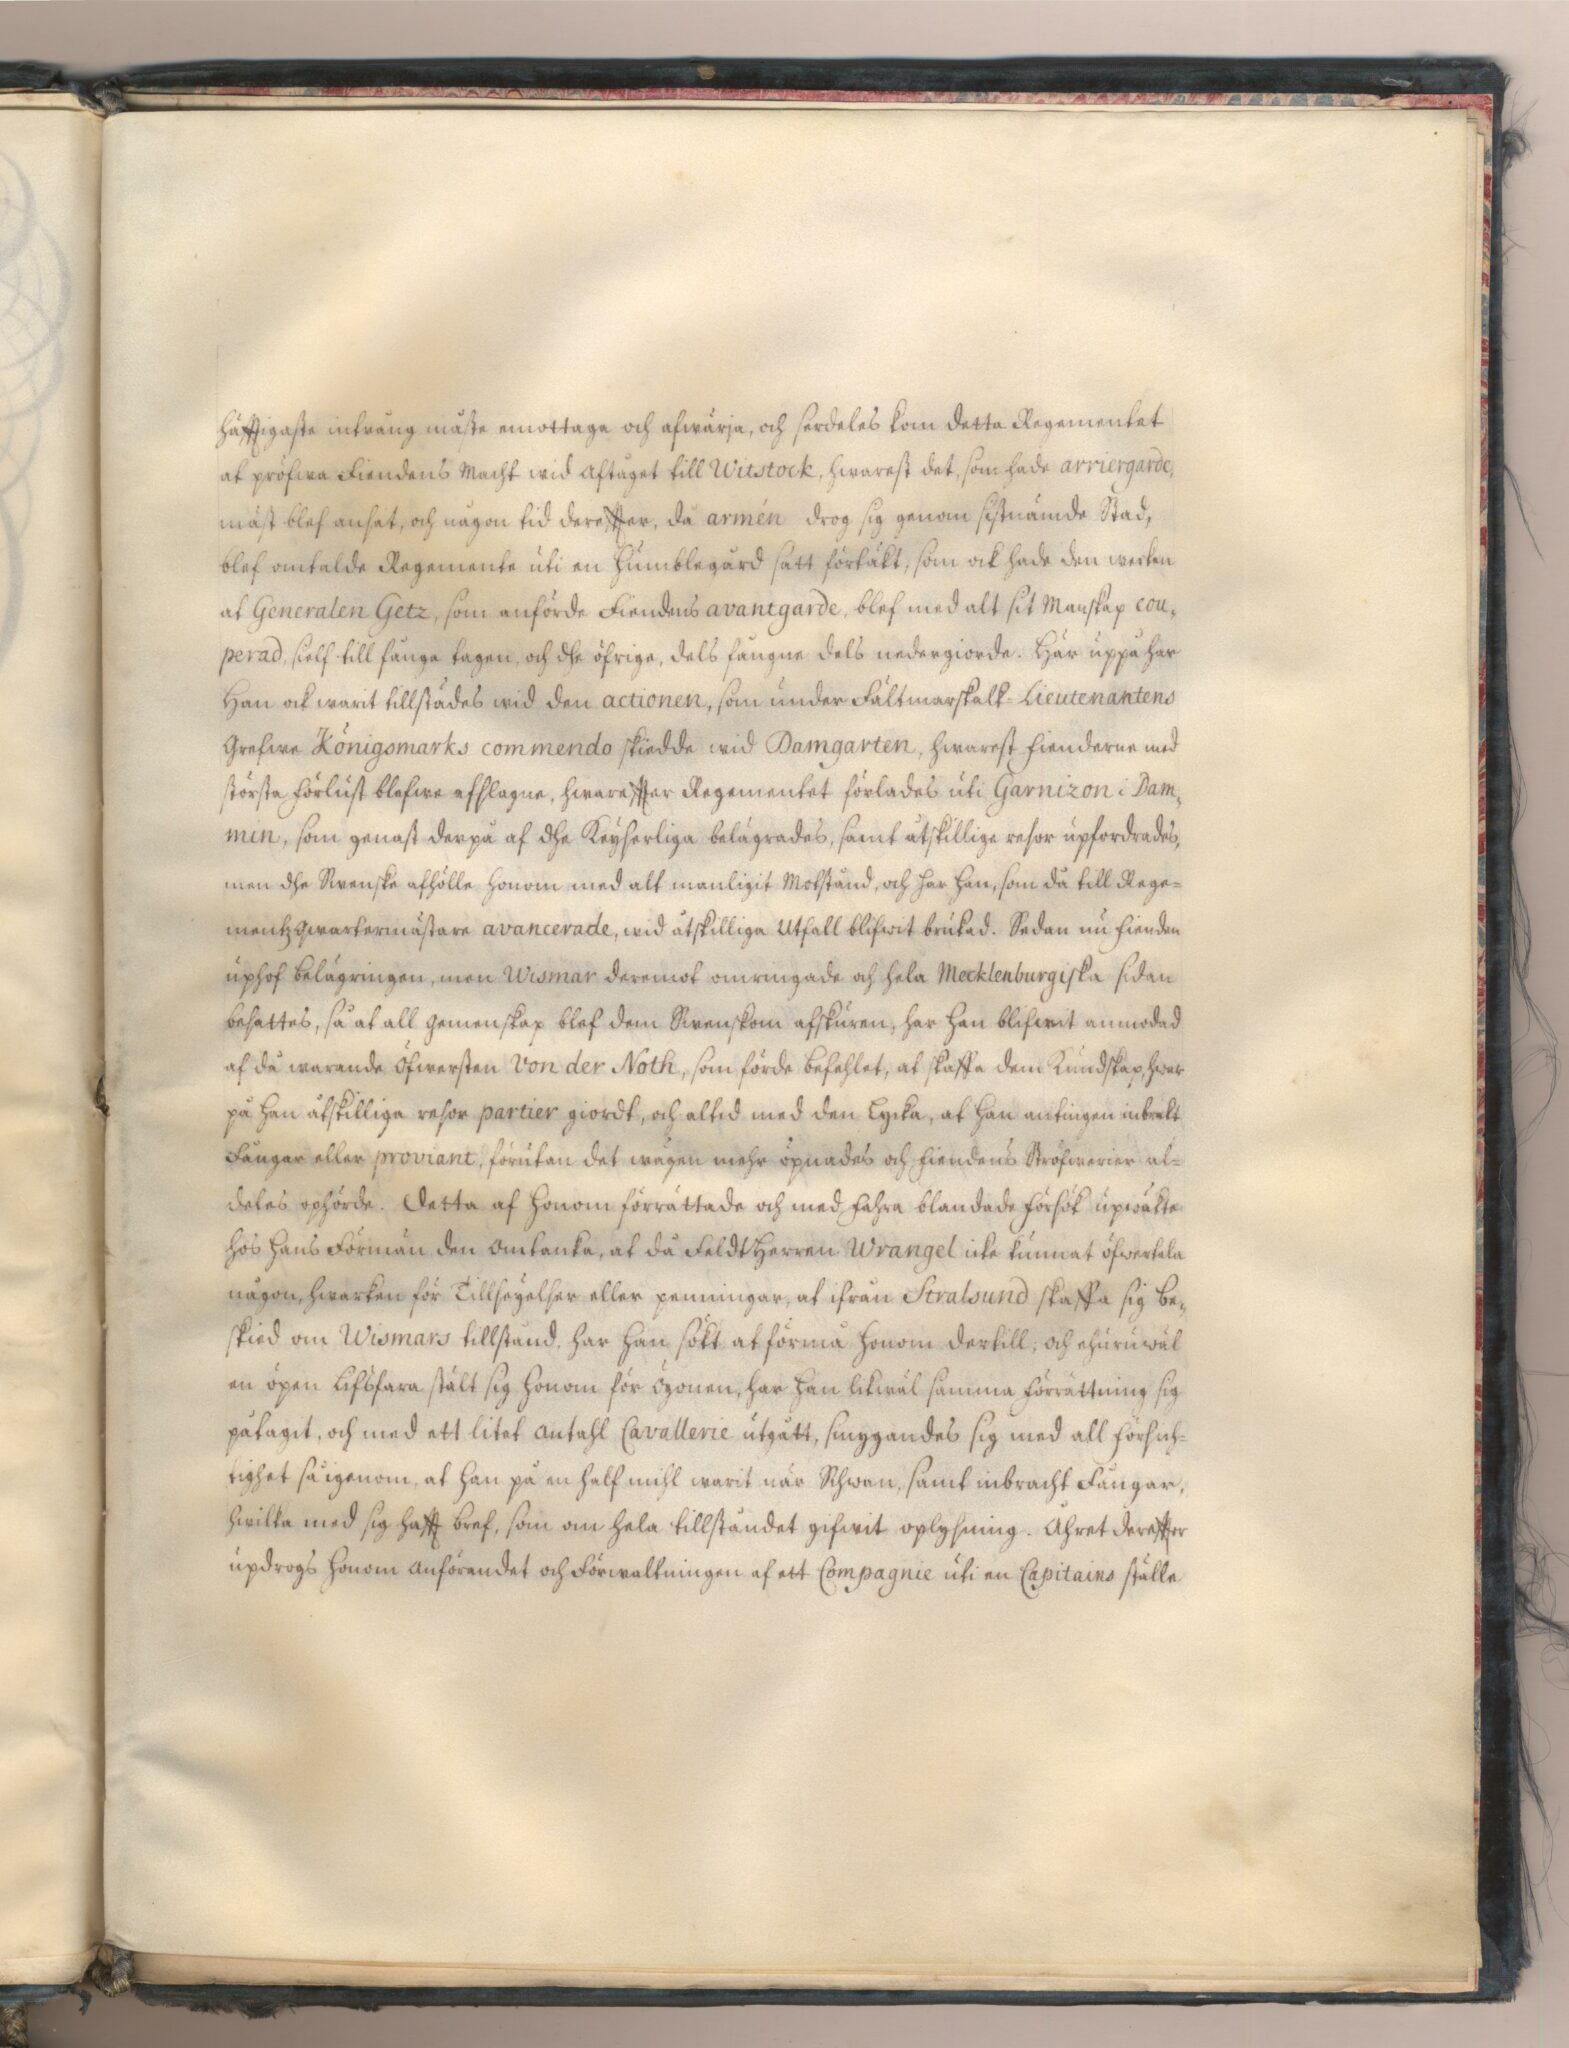 häfftigaste intrång måste emottaga och afwärja, och serdeles kom detta Regementet
at pröfwa Fiendens Macht wid Aftåget till Witstock, hwarest det, som hade arriergarde,
mäst blef ansat, och någon tid derefter, då armén drog sig genom sistnämde Stad,
blef omtalde Regemente uti en Humblegård satt förtäkt, som ock hade den werken
at Generalen Getz, som anförde Fiendens avantgarde, blef med alt sit Manskap cou-
perad, sielf till fånga tagen, och dhe öfrige, dels fångne dels nedergiorde. Här uppå har
Han ock warit tillstädes wid den actionen, som under Fältmarskalk-Lieutenantens
Grefwe Königsmarks commendo skiedde wid Damgarten, hwarest Fienderne med
största Förlust blefwe afslagne, hwarefter Regementet förlades uti Garnizon i Dam-
min, som genast derpå af dhe Keyserliga belägrades, samt åtskillige resor upfordrades,
men dhe Swenske afhölle honom med alt manligit Motstånd, och har Han, som då till Rege-
mentzqwartermästare avancerade, wid åtskilliga Utfall blifwit brukad. Sedan nu Fienden
uphof Belägringen, men Wismar deremot omringade och hela Mecklenburgiska sidan
besattes, så at all Gemenskap blef dem Swenskom afskuren, har Han blifwit anmodad
af då warande Öfwersten Von der Noth, som förde Befehlet, at skaffa dem Kundskap, hwar
på Han åtskilliga resor partier giordt, och altid med den Lycka, at Han antingen inbrakt
Fångar eller proviant, förutan det wägen mehr öpnades och Fiendens Ströfwerier al-
deles ophörde. Detta af Honom förrättade och med Fahra blandade Försök upwäkte
hos Hans Förmän den Omtanka, at då Feldt Herren Wrangel icke kunnat öfwertala
någon, hwarken för Tillseyelser eller penningar, at ifrån Stralsund skaffa sig Be-
skied om Wismars tillstånd, har Han sökt at förmå Honom dertill, och ehuruwäl
en öpen Lifsfara stält sig Honom för Ögonen, har Han likwäl samma Förrättning sig
påtagit, och med ett litet Antahl Cavallerie utgått, smygandes sig med all Försich-
tighet så igenom, at Han på en half mihl warit när Schwan, samt inbracht Fångar,
hwilka med sig hafft Bref, som om hela tillståndet gifwit oplysning. Åhret derefter
updrogs Honom Anförandet och Förwaltningen af ett Compagnie uti en Capitains ställe